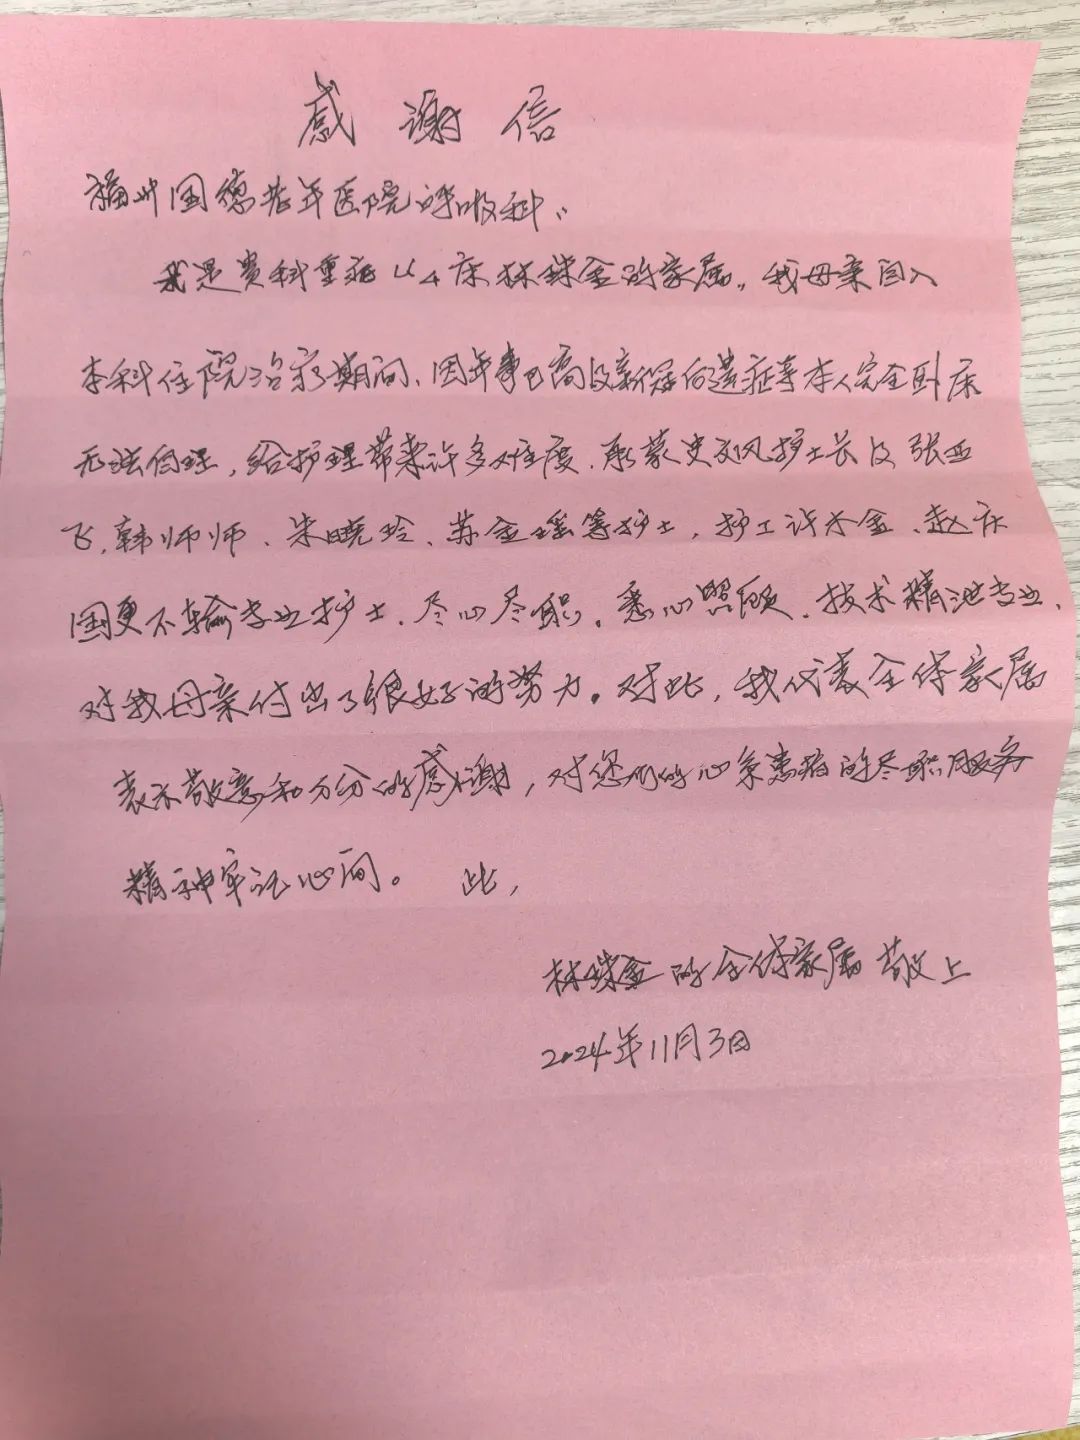 感谢信
福州国德老年医院呼吸科：
我是贵科重症44床林珠金的家属。我母亲自入
本科住院治疗期间、因年事已高及新冠后遗症等本人完全卧床
无法自理，给护理带来许多难度．承蒙史凤护士长及张亚
飞、韩师师、朱晓玲、苏金瑶等护士，护工许木金、赵庆
国更不输专业护士．尽心尽职。悉心照顾．技术精湛专业．
对我母亲付出了很好的努力。对此，我代表全体家属
表示敬意和万分的感谢，对您们的心系患者的尽职服务
精神牢记心间。 此，
林珠金的全体家属 敬上
2024年11月3日